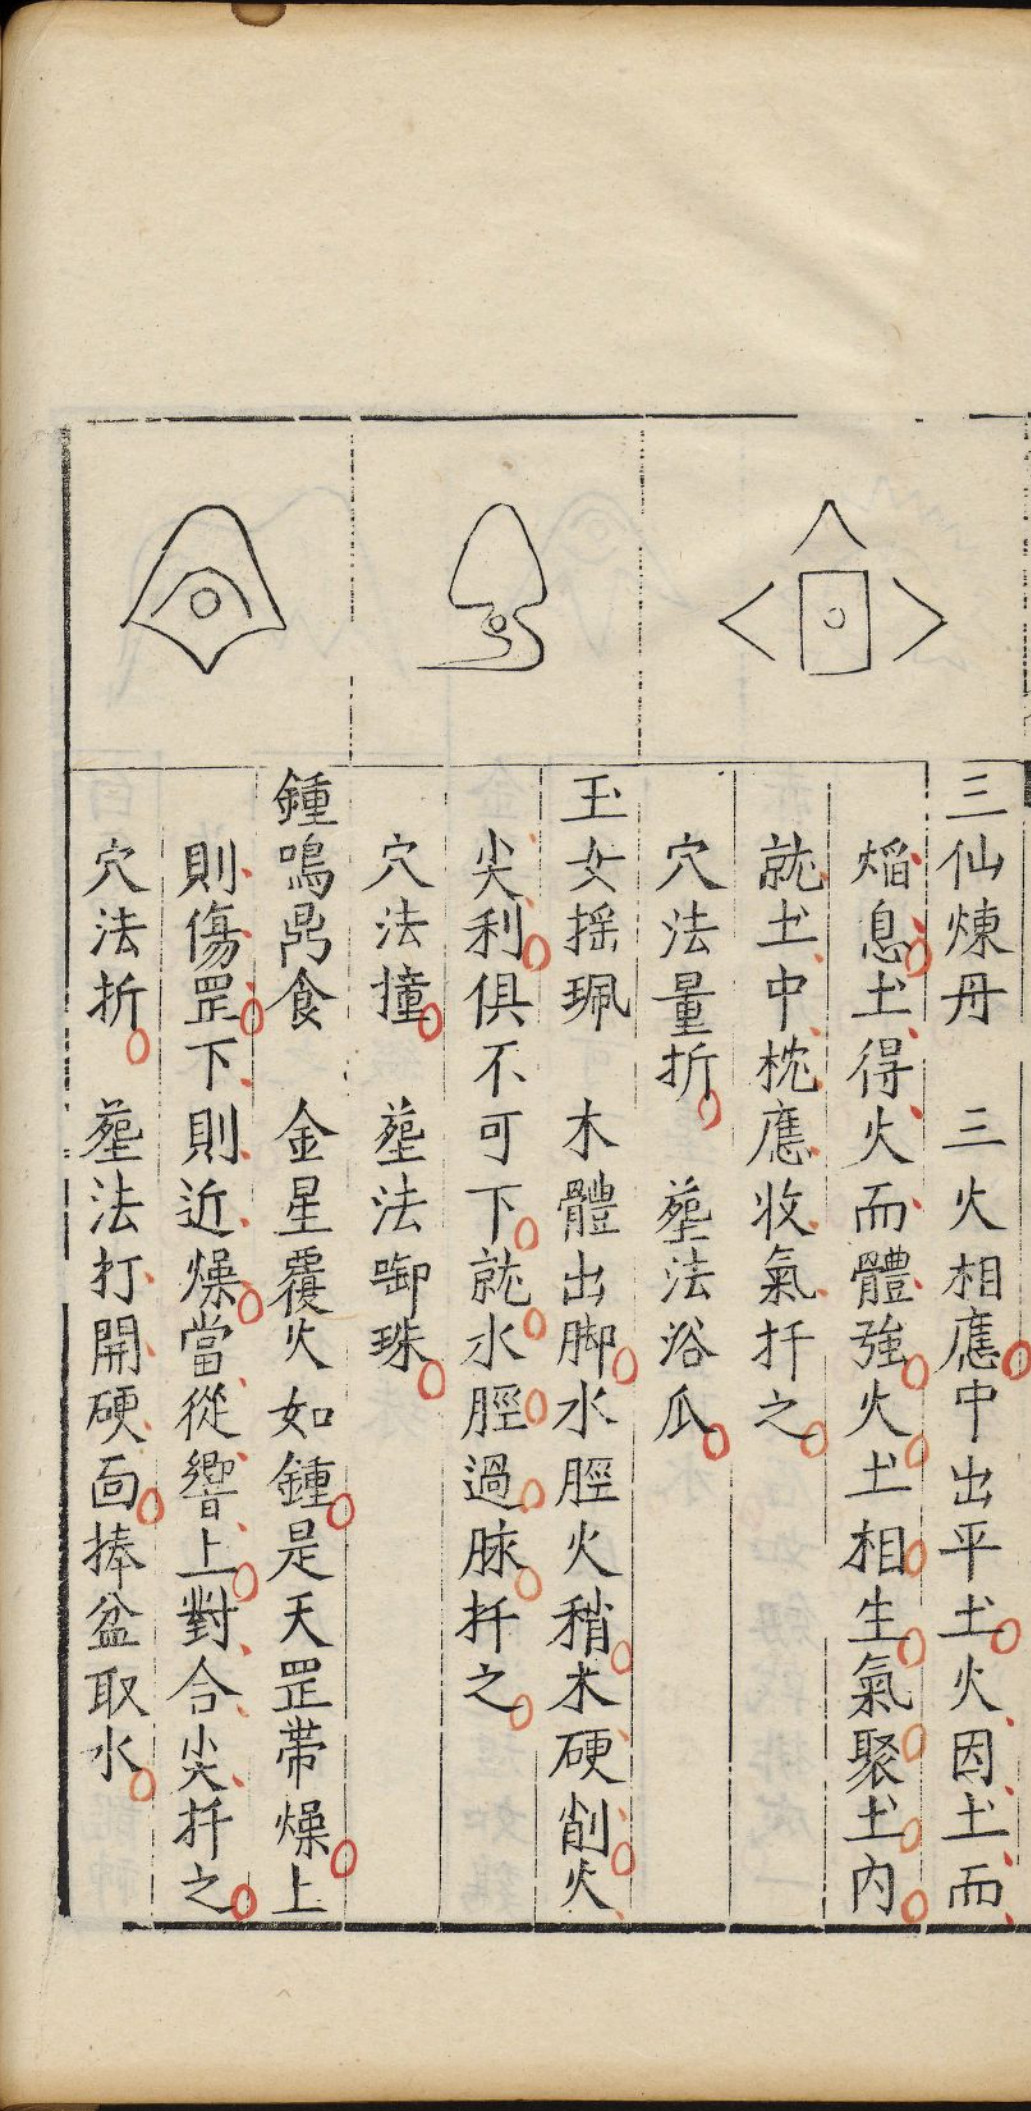 三仙煉丹　三火相應中出平土火因土而
焰息土得火而體強火土相生氣聚土內
就土中枕應收氣扦之
穴法量折　葬法浴瓜
玉女搖珮　木體出脚水脛火稍木硬削火
尖利俱不可下就水脛過脉扦之
穴法撞　葬法啣珠
鍾鳴鼎食　金星覆火如鍾是天罡带燥上
則傷罡下則近燥當從響上對合尖扦之
穴法折　葬法打開硬面捧盆取水